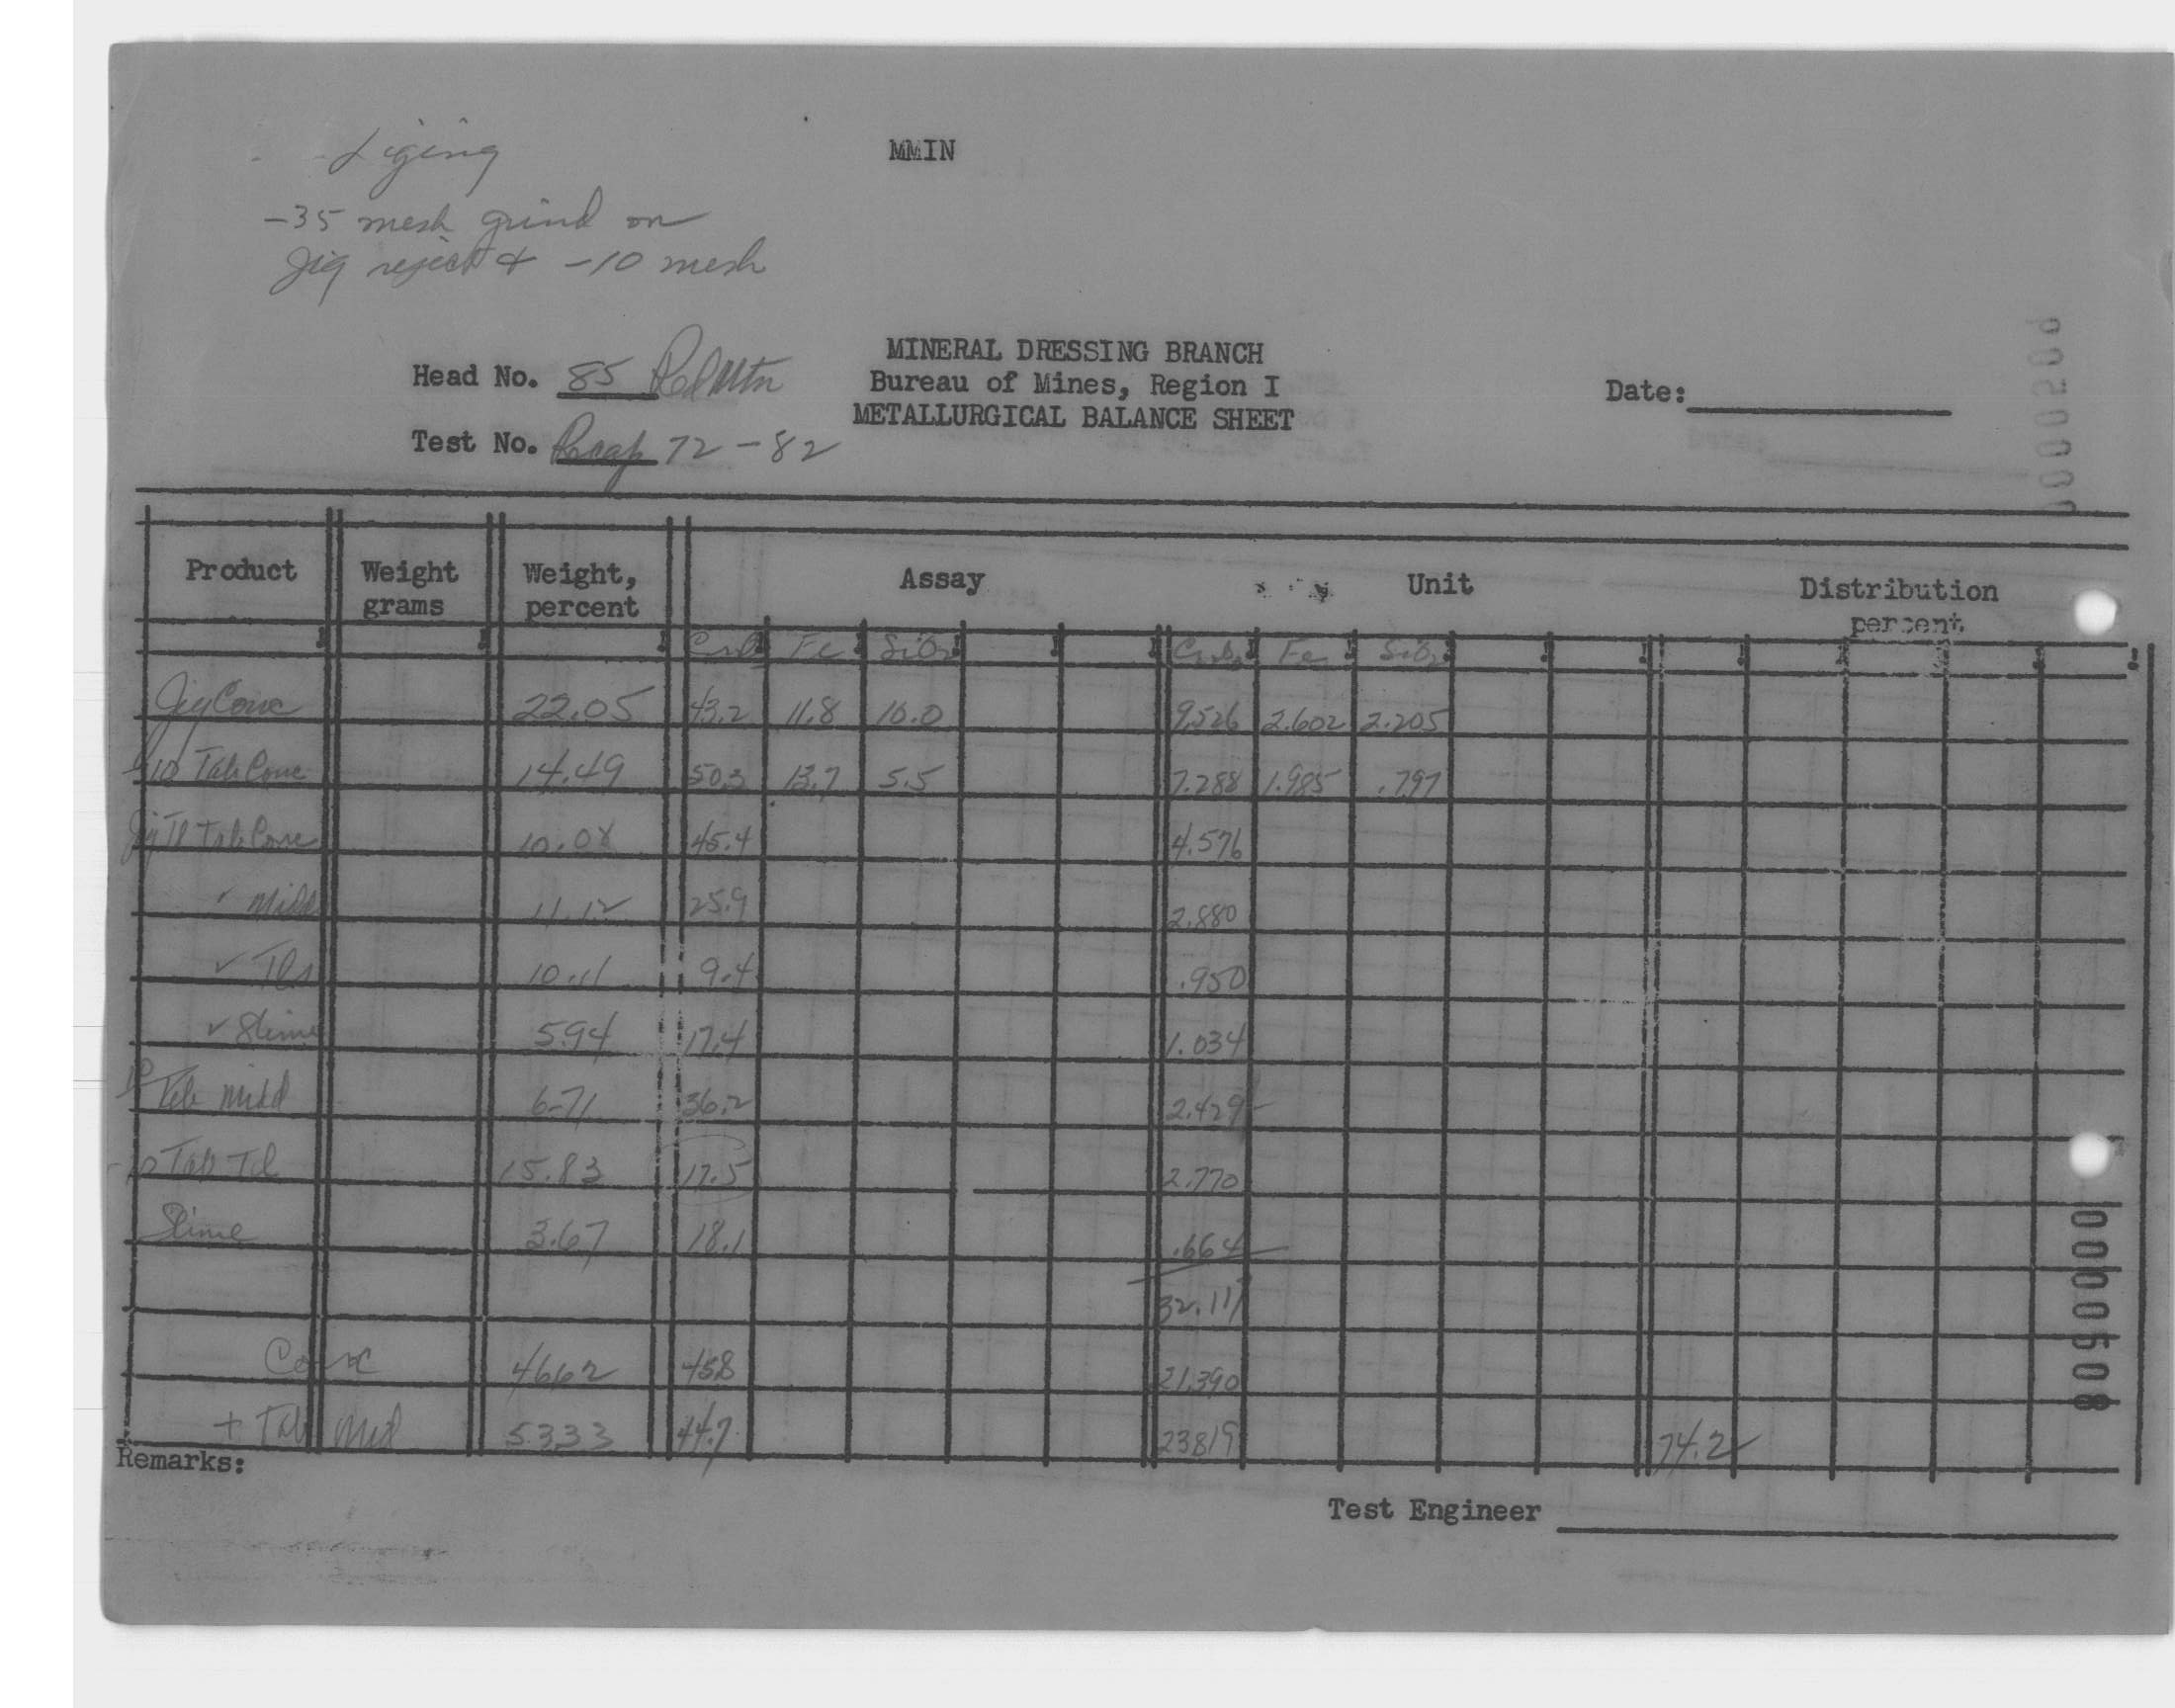 Jiging
MMIN
-35 mesh grind on
Jig reject & -10 mesh
MINERAL DRESSING BRANCH
Head No. 85 Red Mtn
Bureau of Mines, Region I
Date:
METALLURGICAL BALANCE SHEET
Test No. Recap 72-82
Product Weight grams Weight, percent Assay Unit Distribution percent
Fe SiO2 Fe SiO2
Jig Conc 22.05 43.2 11.8 10.0 9.526 2.602 2.205
-10 Tab Conc 14.49 50.3 13.7 5.5 7.288 1.985 .797
Jig Tl Tab Conc 10.08 45.4 4.576
" Midd 11.12 25.9 2.880
" Tls 10.11 9.4 .950
" Slime 5.94 17.4 1.034
-10 Tab Midd 6.71 36.2 2.429
-10 Tab Tl 15.83 17.5 2.770
Slime 3.67 18.1 .664
32.117
Conc 46.62 45.8 21.390
+ Tab Mid 53.33 44.7 23.819 74.2
Remarks:
Test Engineer
0000508